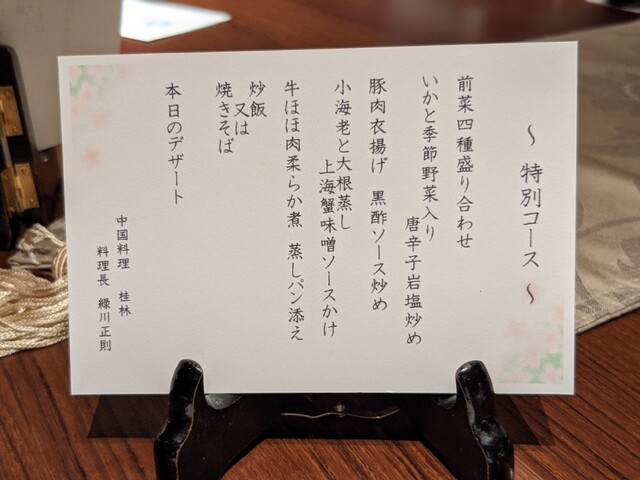 ～ 特別コース ～
前菜四種盛り合わせ
いかと季節野菜入り
唐辛子岩塩炒め
豚肉衣揚げ 黒酢ソース炒め
小海老と大根蒸し
上海蟹味噌ソースかけ
牛ほほ肉柔らか煮 蒸しパン添え
炒飯
又は
焼きそば
本日のデザート
中国料理 桂林
料理長 緑川正則